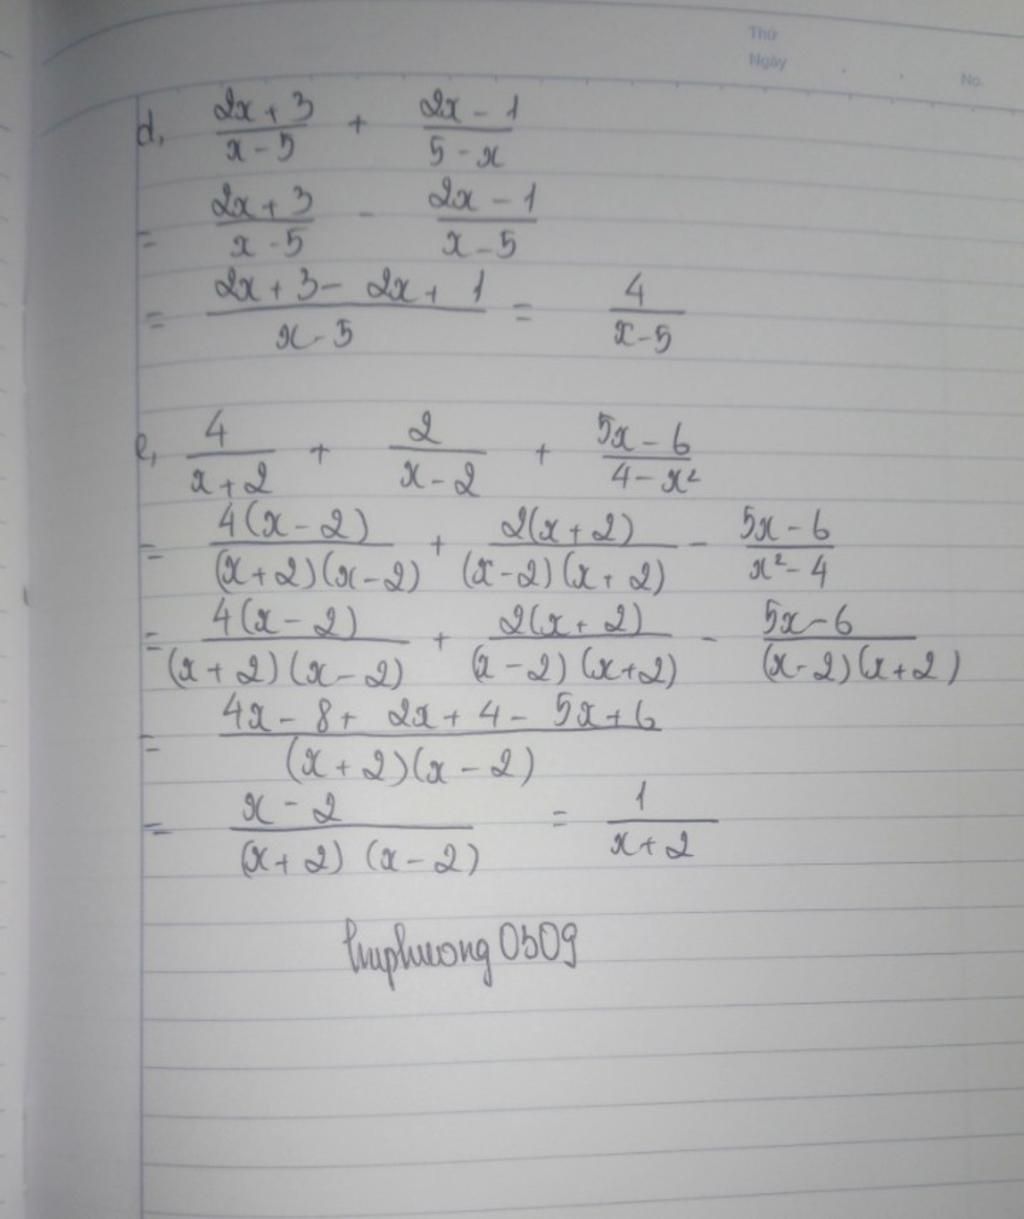 Thứ
Ngày
No.
d, (2x + 3)/(x - 5) + (2x - 1)/(5 - x)
= (2x + 3)/(x - 5) - (2x - 1)/(x - 5)
= (2x + 3 - 2x + 1)/(x - 5) = 4/(x - 5)
e, 4/(x + 2) + 2/(x - 2) + (5x - 6)/(4 - x²)
= 4(x - 2)/((x + 2)(x - 2)) + 2(x + 2)/((x - 2)(x + 2)) - (5x - 6)/(x² - 4)
= 4(x - 2)/((x + 2)(x - 2)) + 2(x + 2)/((x - 2)(x + 2)) - (5x - 6)/((x - 2)(x + 2))
= (4x - 8 + 2x + 4 - 5x + 6)/((x + 2)(x - 2))
= (x - 2)/((x + 2)(x - 2)) = 1/(x + 2)